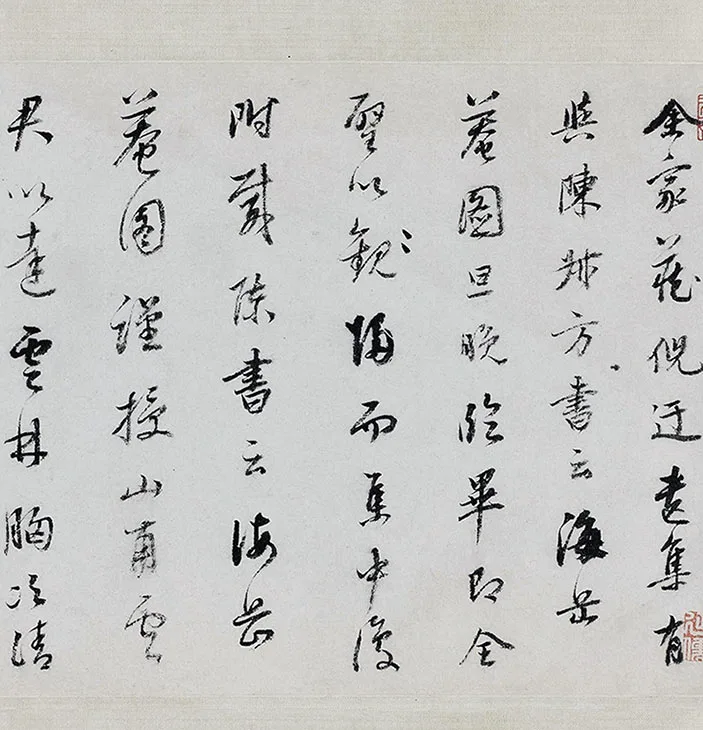 余家藏倪迂遺集有
與陳叔方書云海岳
菴圖旦晚臨畢即全
璧以觀歸而集中復
附載陳書云海岳
菴圖謹授山甫雲
君以達雲林胸次清